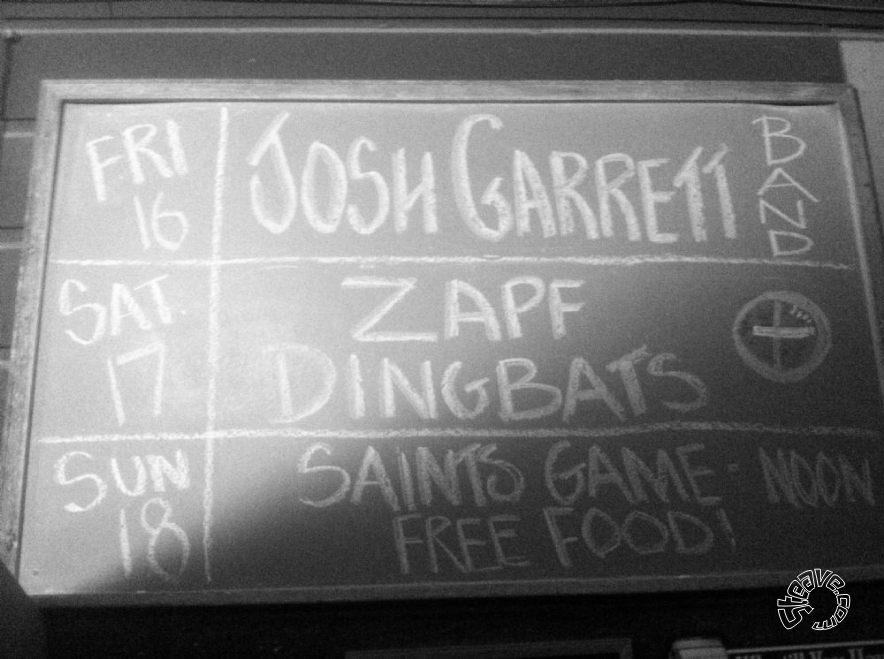 FRI 16
JOSH GARRETT BAND
SAT. 17
ZAPF
DINGBATS
SUN 18
SAINTS GAME - NOON
FREE FOOD!
steave.com